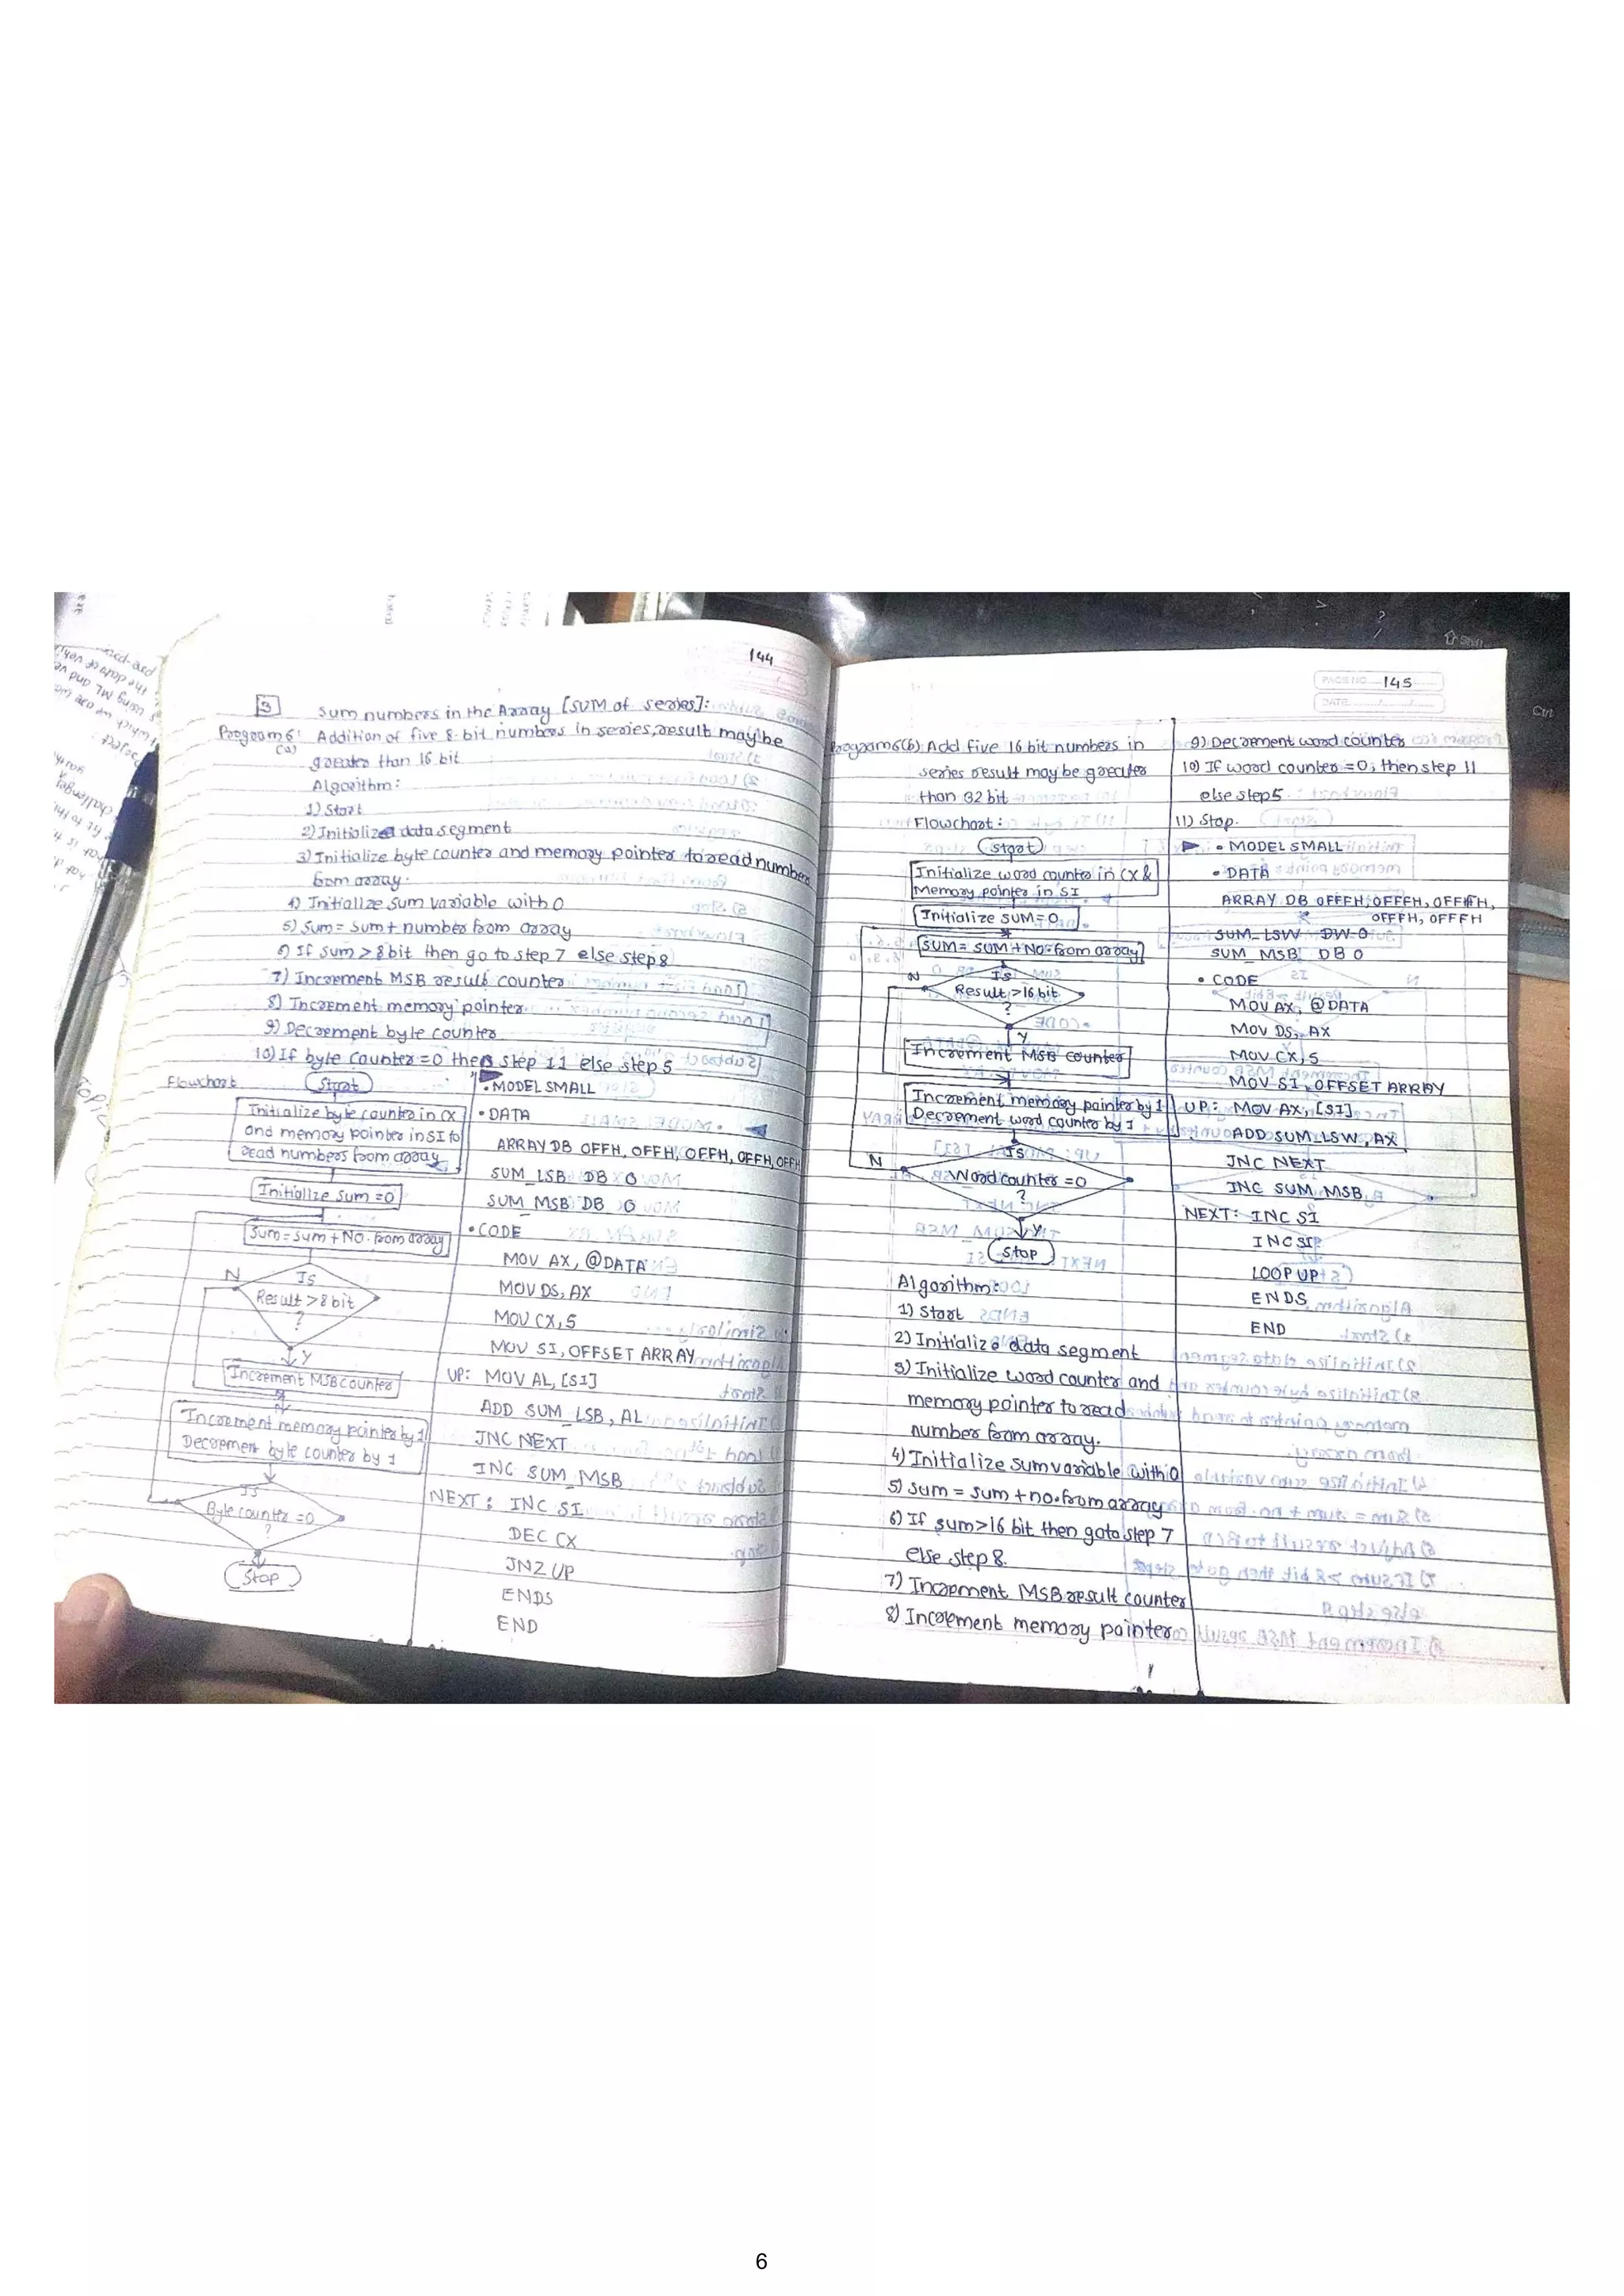 144
3 Sum numbers in the Array [SUM of series]:
Program 6: Addition of five 8-bit numbers in series, result maybe
(a)
greater than 16 bit
Algorithm:
1) Start
2) Initialize data segment
3) Initialize byte counter and memory pointer to read numbers
from array.
4) Initialize sum variable with 0
5) Sum = Sum + number from array
6) If sum > 8 bit then go to step 7 else step 8
7) Increment MSB result counter
8) Increment memory pointer
9) Decrement byte counter
10) If byte counter = 0 then step 11 else step 5
Flowchart
Start
Initialize byte counter in CX
and memory pointer in SI to
read numbers from array
Initialize Sum = 0
Sum = Sum + No. from array
Is
Result > 8 bit
?
N
Y
Increment MSB counter
Increment memory pointer by 1
Decrement byte counter by 1
Is
Byte counter = 0
?
Stop
.MODEL SMALL
.DATA
ARRAY DB 0FFH, 0FFH, 0FFH, 0FFH, 0FFH
SUM_LSB DB 0
SUM_MSB DB 0
.CODE
MOV AX, @DATA
MOV DS, AX
MOV CX, 5
MOV SI, OFFSET ARRAY
UP: MOV AL, [SI]
ADD SUM_LSB, AL
JNC NEXT
INC SUM_MSB
NEXT: INC SI
DEC CX
JNZ UP
ENDS
END
PAGE NO. 145
DATE
Program 6(b) Add five 16 bit numbers in
series result may be greater
than 32 bit
Flowchart:
Start
Initialize word counter in CX &
Memory pointer in SI
Initialize SUM = 0
SUM = SUM + No. from array
Is
Result > 16 bit
?
N
Y
Increment MSB counter
Increment memory pointer by 1
Decrement word counter by 1
Is
Word counter = 0
?
N
Y
Stop
Algorithm:
1) Start
2) Initialize data segment
3) Initialize word counter and
memory pointer to read
number from array.
4) Initialize sum variable with 0
5) Sum = sum + no. from array
6) If sum > 16 bit then goto step 7
else step 8.
7) Increment MSB result counter
8) Increment memory pointer
9) Decrement word counter
10) If word counter = 0, then step 11
else step 5
11) Stop.
.MODEL SMALL
.DATA
ARRAY DB 0FFFH, 0FFFH, 0FFFH,
0FFFH, 0FFFH
SUM_LSW DW 0
SUM_MSB DB 0
.CODE
MOV AX, @DATA
MOV DS, AX
MOV CX, 5
MOV SI, OFFSET ARRAY
UP: MOV AX, [SI]
ADD SUM_LSW, AX
JNC NEXT
INC SUM_MSB
NEXT: INC SI
INC SI
LOOP UP
ENDS
END
6